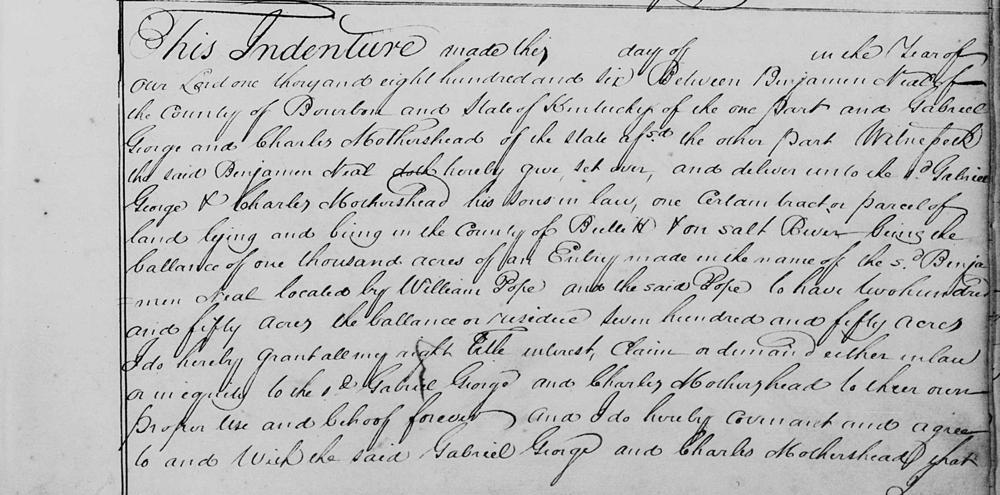 This Indenture made this day of in the Year of
our Lord one thousand eight hundred and six Between Benjamen Neal of
the County of Bourbon and State of Kentucky of the one part and Gabriel
George and Charles Mothershead of the state afsd. the other part Witnesseth
the said Benjamen Neal doth hereby give, set over, and deliver unto the sd. Gabriel
George & Charles Mothershead his sons in law, one Certain tract or parcel of
land lying and being in the County of Bullitt & on salt River being the
ballance of one thousand acres of an Entry made in the name of the sd. Benja
=men Neal located by William Pope and the said Pope to have two hundred
and fifty acres the ballance or residue seven hundred and fifty acres
I do hereby grant all my right Title interest, Claim or demand either in law
or in equity to the sd. Gabriel George and Charles Mothershead to their own
proper Use and behoof forever and I do hereby covenant and agree
to and With the said Gabriel George and Charles Mothershead that